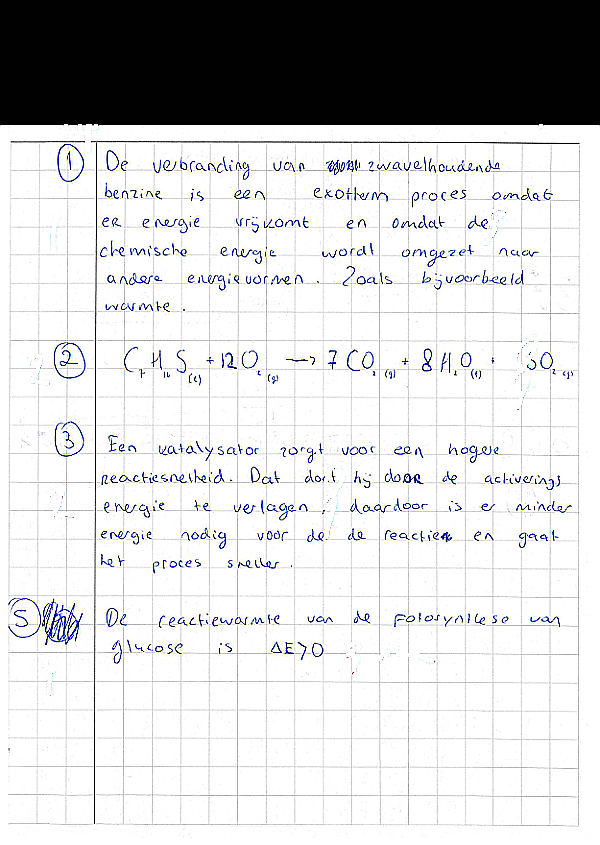 1 De verbranding van zwavelhoudende
benzine is een exotherm proces omdat
er energie vrijkomt en omdat de
chemische energie wordt omgezet naar
andere energievormen. Zoals bijvoorbeeld
warmte.
2 C₇H₁₆S(l) + 12O₂(g) → 7CO₂(g) + 8H₂O(l) + SO₂(g)
3 Een katalysator zorgt voor een hogere
reactiesnelheid. Dat doet hij door de activerings
energie te verlagen, daardoor is er minder
energie nodig voor de de reactie en gaat
het proces sneller.
5 De reactiewarmte van de fotosynthese van
glucose is ΔE>0